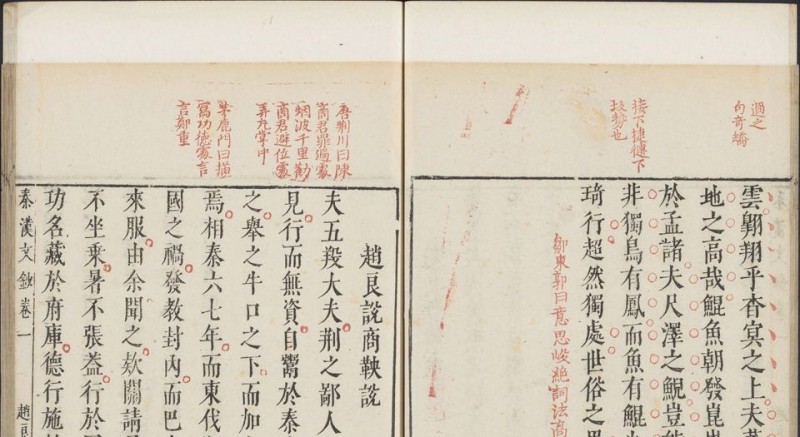 句奇
接下捷
下
勢也
雲翱翔乎杳冥之上夫
地之高哉鯤魚朝發崑
於孟諸夫尺澤之鯢豈
非獨鳥有鳳而魚有鯤
琦行超然獨處世俗之
鄒東郭曰意思峻絶詞法高
唐荊川曰陳
商君罪過處
烟波千里勸
商君避位處
弄丸掌中
茅鹿門曰撗
寫功德處言
言鄭重
趙良說商鞅說
夫五羖大夫荆之鄙人
見行而無資自鬻於秦
之舉之牛口之下而加
焉相秦六七年而東伐
國之禍發教封內而巴
來服由余聞之欵關請
不坐乘暑不張葢行於
功名藏於府庫德行施
秦漢文鈔卷一 趙良